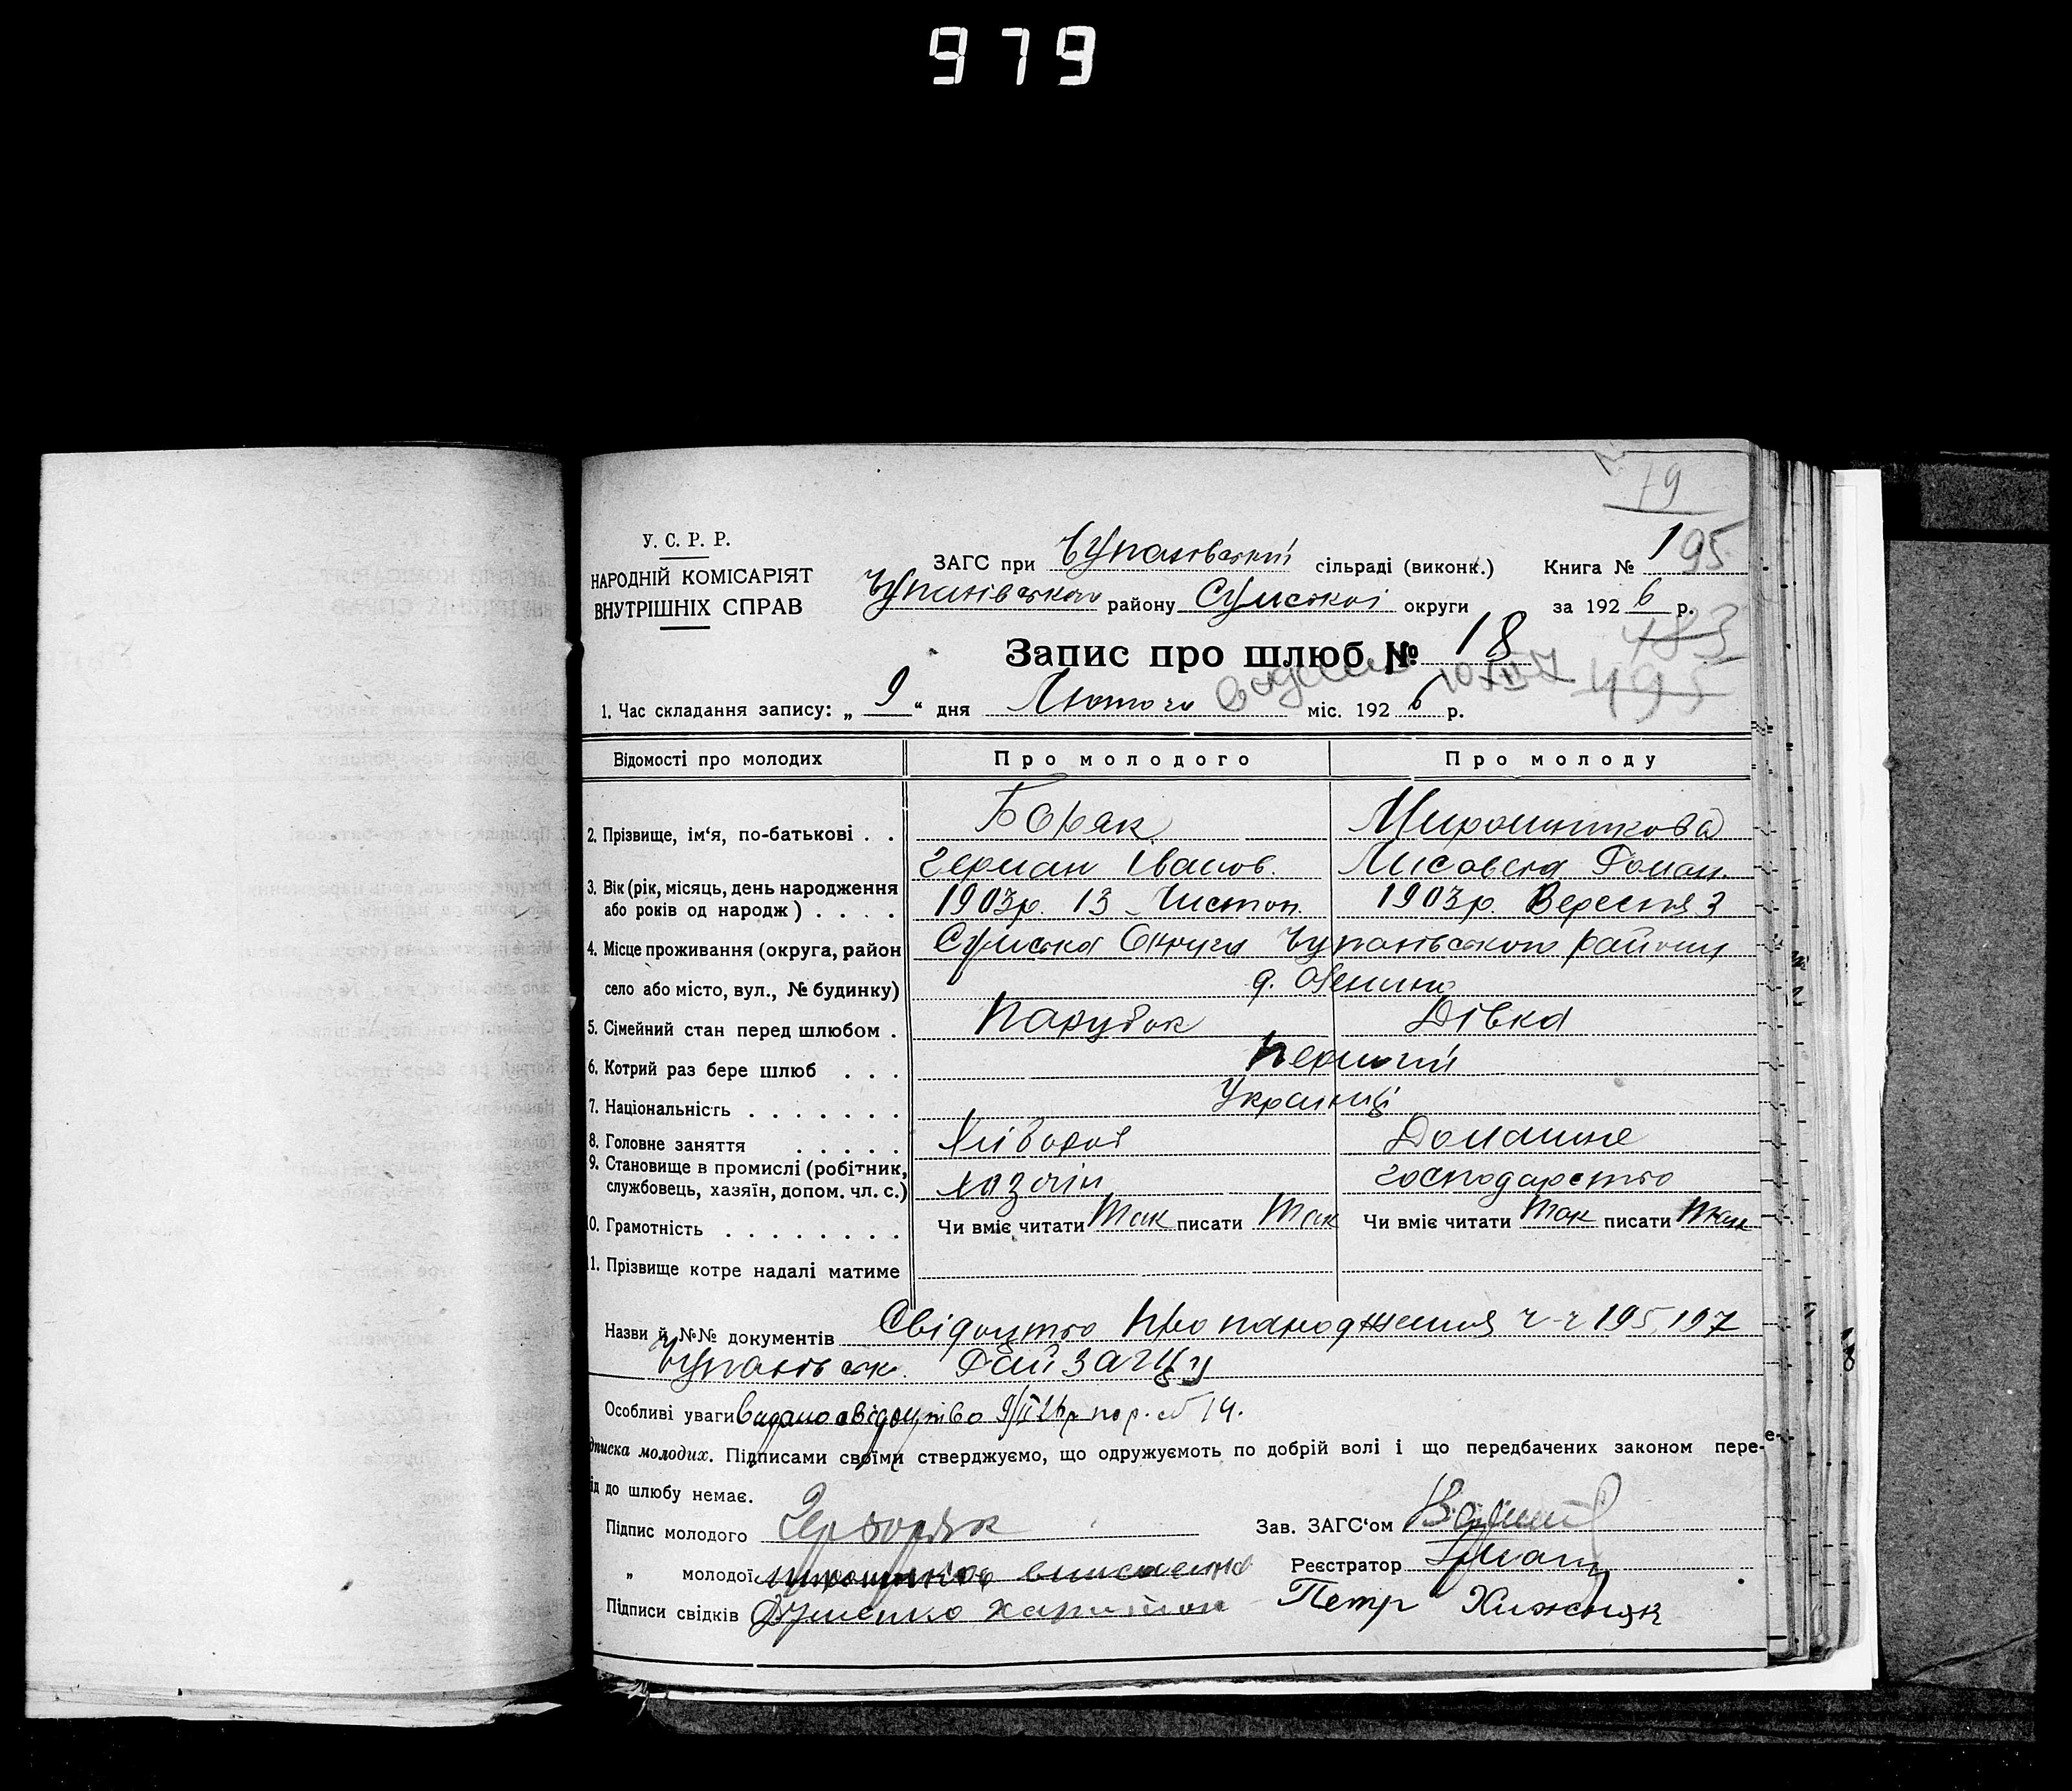 979
79
У. С. Р. Р.
НАРОДНІЙ КОМІСАРІЯТ
ВНУТРІШНІХ СПРАВ
ЗАГС при Чупахівській сільраді (виконк.) Книга № 195
Чупахівського району Сумської округи за 1926 р.
483
Запис про шлюб № 18
495
1. Час складання запису: „9“ дня Лютого міс. 1926 р.
Відомості про молодих Про молодого Про молоду
2. Прізвище, ім‘я, по-батькові . . Боряк Мирошникова
Герман Іванов. Роман.
3. Вік (рік, місяць, день народження 1903р. 13 Листоп. 1903р. Вересня 3
або років од народж) . . . .
4. Місце проживання (округа, район Сумська Округа Чупахівського району
село або місто, вул., № будинку)
5. Сімейний стан перед шлюбом . Парубок Дівка
6. Котрий раз бере шлюб . . . Перший
7. Національність . . . . . . . Українці
8. Головне заняття . . . . . Хлібороб Домашне
9. Становище в промислі (робітник, Хазяін господарство
службовець, хазяїн, допом. чл. с.)
10. Грамотність . . . . . . . . Чи вміє читати Так писати Так Чи вміє читати Так писати Так
11. Прізвище котре надалі матиме
Назви й №№ документів Свідоцтво про народження ч-ч 195, 197
Чупахівськ. Рай ЗАГСу
Особливі уваги видано свідоцтво 9/II 26р
дписка молодих. Підписами своїми стверджуємо, що одружуємоть по добрій волі і що передбачених законом пере-
ід до шлюбу немає.
Підпис молодого Гер Боряк Зав. ЗАГС‘ом
„ молодої Реєстратор
Підписи свідків Харитон Петр Хижняк